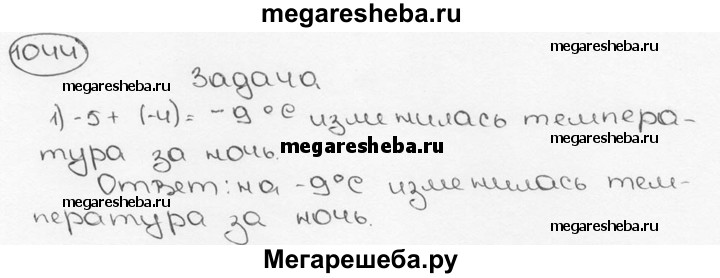 megaresheba.ru
1044
megaresheba.ru
megaresheba.ru
Задача
1) -5 + (-4) = -9°С изменилась темпера-
megaresheba.ru
тура за ночь.
megaresheba.ru
Ответ: на -9°С изменилась тем-
megaresheba.ru
megaresheba.ru
пература за ночь.
Мегарешеба.ру